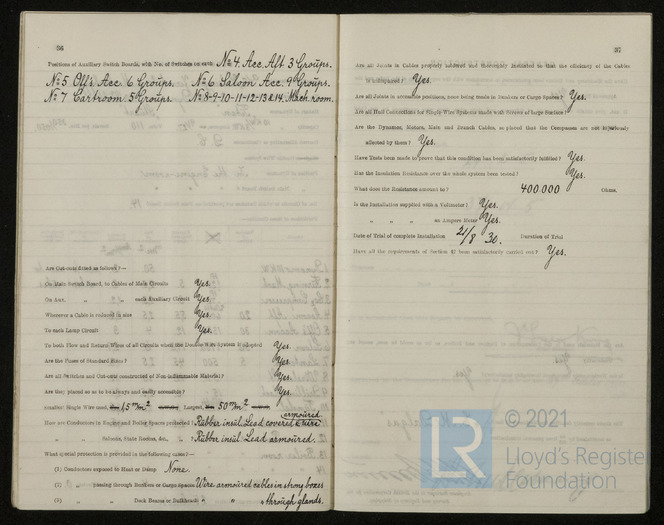 36
Positions of Auxiliary Switch Boards, with No. of Switches on each No 4 Acc. Aft 3 Groups.
No 5 Off's Acc 6 Groups. No 6 Saloon Acc. 9 Groups.
No 7 Cartroom. 5 Groups. No 8-9-10-11-12-13 & 14. Mach room.
Are Cut-outs fitted as follows?—
On Main Switch Board, to Cables of Main Circuits Yes.
On Aux. " " each Auxiliary Circuit Yes.
Wherever a Cable is reduced in size Yes.
To each Lamp Circuit Yes.
To both Flow and Return Wires of all Circuits when the Double-Wire System is adopted Yes.
Are the Fuses of Standard Sizes? Yes.
Are all Switches and Cut-outs constructed of Non-inflammable Material? Yes.
Are they placed so as to be always and easily accessible? Yes.
Smallest Single Wire used, 1,5 m/m2 Largest, 50 m/m2
How are Conductors in Engine and Boiler Spaces protected? Rubber insul. Lead covered & wire armoured
" " Saloons, State Rooms, &c., " ? Rubber insul. Lead armoured.
What special protection is provided in the following cases?—
(1) Conductors exposed to Heat or Damp None.
(2) " passing through Bunkers or Cargo Spaces Wire armoured cables in strong boxes
(3) " " Deck Beams or Bulkheads " " " through glands.
37
Are all Joints in Cables properly soldered and thoroughly insulated so that the efficiency of the Cables
is unimpaired? Yes.
Are all Joints in accessible positions, none being made in Bunkers or Cargo Spaces? Yes.
Are all Hull Connections for Single-Wire Systems made with Screws of large Surface?
Are the Dynamos, Motors, Main and Branch Cables, so placed that the Compasses are not injuriously
affected by them? Yes.
Have Tests been made to prove that this condition has been satisfactorily fulfilled? Yes.
Has the Insulation Resistance over the whole system been tested? Yes.
What does the Resistance amount to? 400.000 Ohms.
Is the Installation supplied with a Voltmeter? Yes.
" " " " an Ampere Meter Yes.
Date of Trial of complete Installation 21/8 30. Duration of Trial
Have all the requirements of Section 17 been satisfactorily carried out? Yes.
LR
© 2021
Lloyd's Register
Foundation